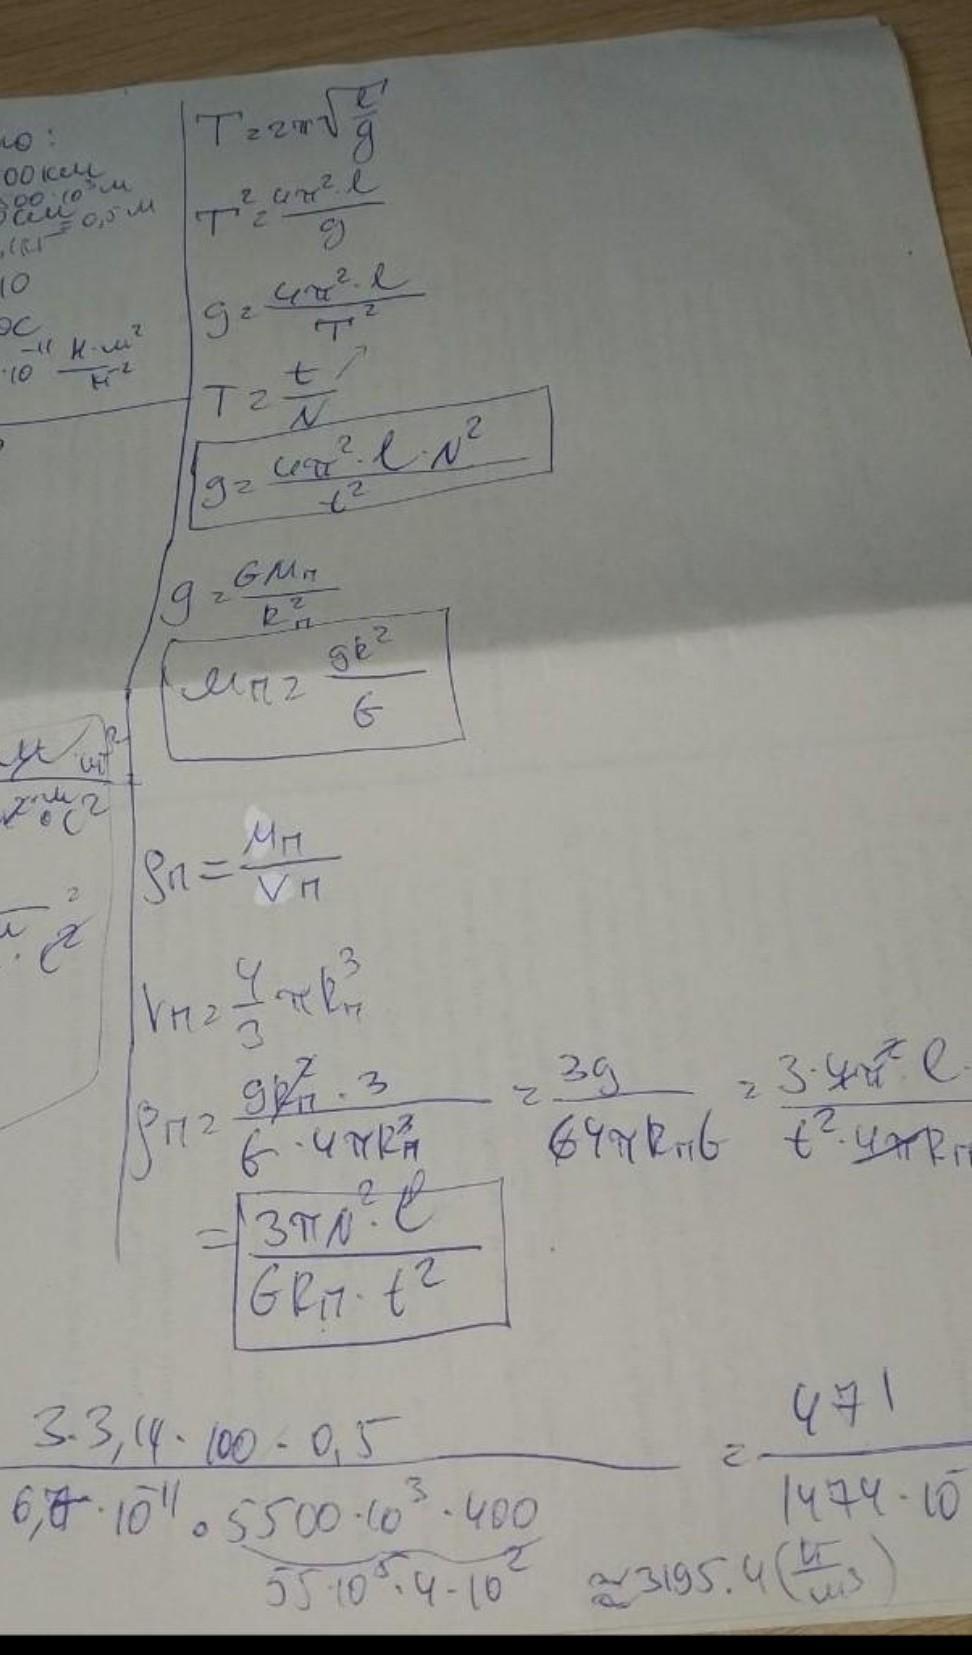 00 км
500·10³ м
0,5 м
10
10⁻¹¹ Н·м²/кг²
T = 2π√(l/g)
T² = 4π²·l/g
g = 4π²·l/T²
T = t/N
g = 4π²·l·N²/t²
g = GMп/Rп²
Mп = gR²/G
ρп = Mп/Vп
Vп = 4/3 πRп³
ρп = gRп²·3/G·4πRп³ = 3g/4πRпG = 3·4π²·l·/t²·4πRп
= 3πN²·l/GRп·t²
3·3,14·100·0,5/6,7·10⁻¹¹·5500·10³·400 = 471/1474·10
55·10⁵·4·10² ≈ 3195.4 (кг/м³)